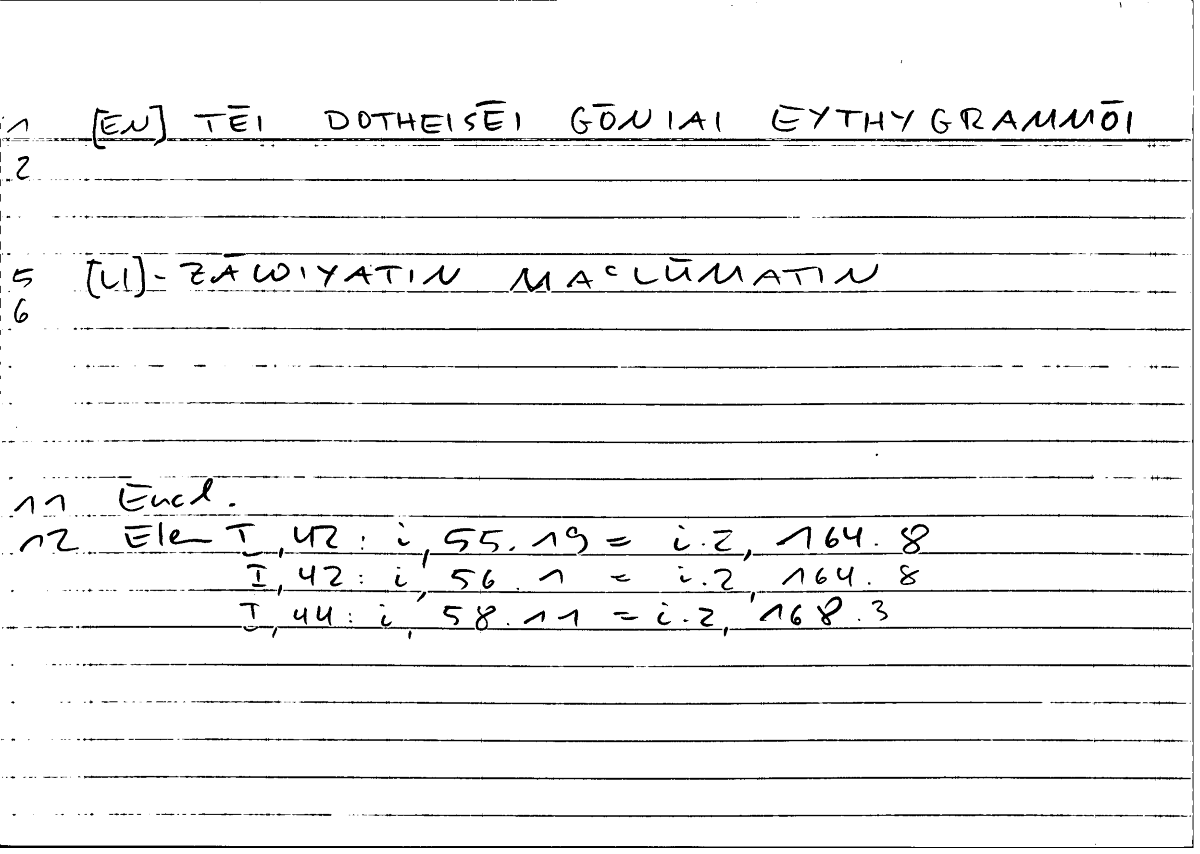 1 [EN] TĒI DOTHEISĒI GŌNIAI EYTHYGRAMMŌI
2
5 [LI]- ZĀWIYATIN MAᶜLŪMATIN
6
11 Eucl.
12 Elem I, 42 : i, 55. 19 = i.2, 164. 8
I, 42 : i, 56. 1 = i.2, 164. 8
I, 44 : i, 58. 11 = i.2, 168. 3